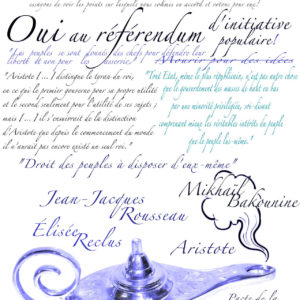 essayons de voir les points sur lesquels nous sommes en accord et votons pour eux!
Oui au référendum d'initiative populaire!
"Les peuples se sont donnés des chefs pour défendre leur
liberté et non pour les asservir."
Mourir pour des idées
"Aristote [...] distingue le tyran du roi,
en ce que le premier gouverne pour sa propre utilité
et le second seulement pour l'utilité de ses sujets ;
mais [...] il s'ensuivrait de la distinction
d'Aristote que depuis le commencement du monde
il n'aurait pas encore existé un seul roi."
"Tout Etat, même le plus républicain, n'est pas autre chose
que le gouvernement des masses de haut en bas
par une minorité privilégiée, soi-disant
comprenant mieux les véritables intérêts du peuple
que le peuple lui-même."
"Droit des peuples à disposer d'eux-même"
Jean-Jacques
Rousseau
Mikhaïl
Bakounine
Élisée
Reclus
Aristote
Pacte de la